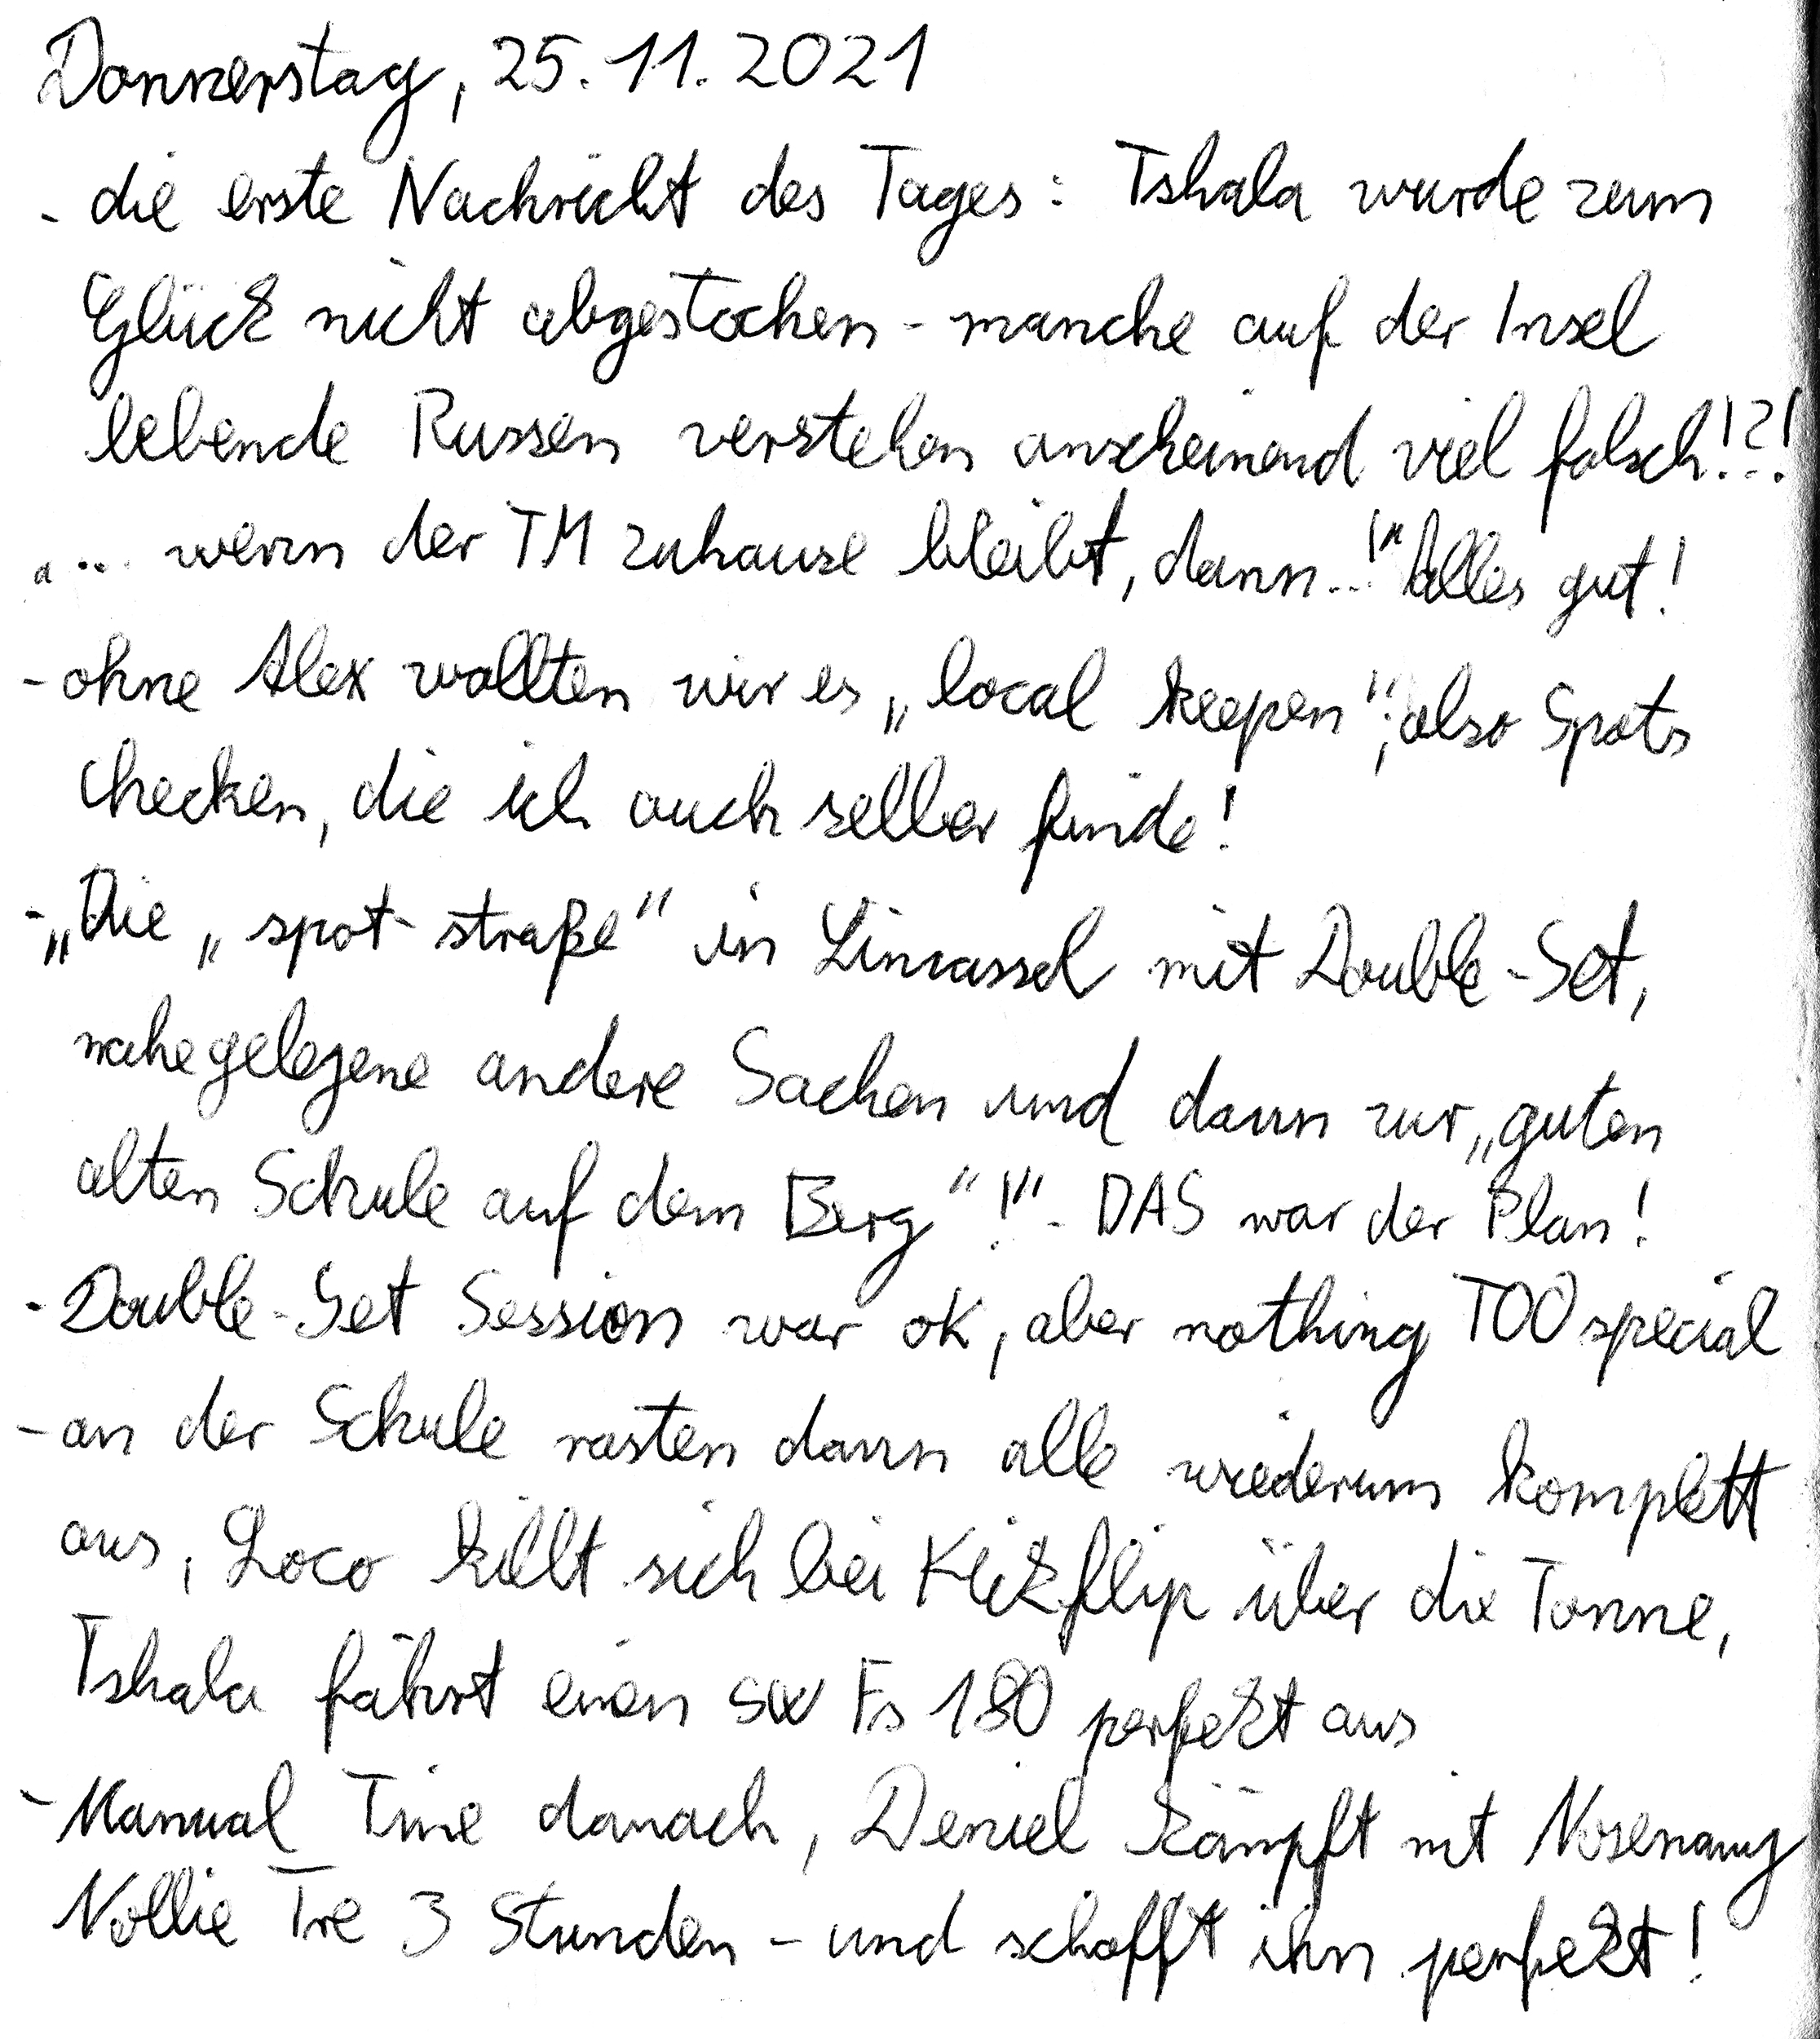 Donnerstag, 25.11.2021
- die erste Nachricht des Tages: Tshala wurde zum
Glück nicht abgestochen - manche auf der Insel
lebende Russen verstehen anscheinend viel falsch!?!
"... wenn der TM zuhause bleibt, dann...!" Alles gut!
- ohne Alex wollten wir es „local keepen", also Spots
checken, die ich auch selber finde!
- „Die „spot-straße" in Limassol mit Double-Set,
nahegelegene andere Sachen und dann zur „guten
alten Schule auf dem Berg"!" - DAS war der Plan!
- Double-Set Session war ok, aber nothing TOO special
- an der Schule rasten dann alle wiederum komplett
aus, Loco killt sich bei Kickflip über die Tonne,
Tshala fährt einen sw Fs 180 perfekt aus
- Manual Time danach, Deniel kämpft mit Nosemanny
Nollie Tre 3 Stunden - und schafft ihn perfekt!